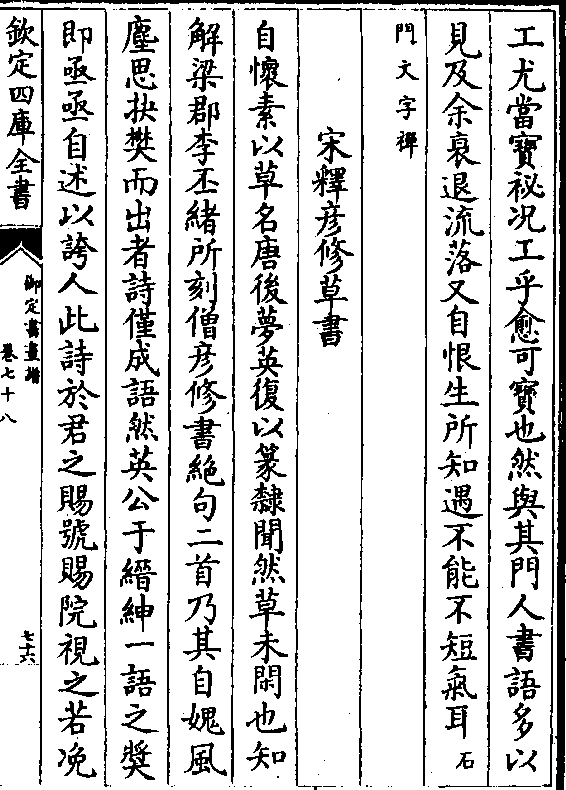 工尤當寳祕况工乎愈可寳也然與其門人書語多以
見及余衰退流落又自恨生所知遇不能不短氣耳石
門文字禪
宋釋彦修草書
自懷素以草名唐後夢英復以篆隸聞然草未閑也知
解梁郡李丕緒所刻僧彦修書絶句二首乃其自媿風
塵思抉樊而出者詩僅成語然英公于縉紳一語之奬
即亟亟自述以誇人此詩於君之賜號賜院視之若浼
欽定四庫全書
御定書畫譜
卷七十八
七十六